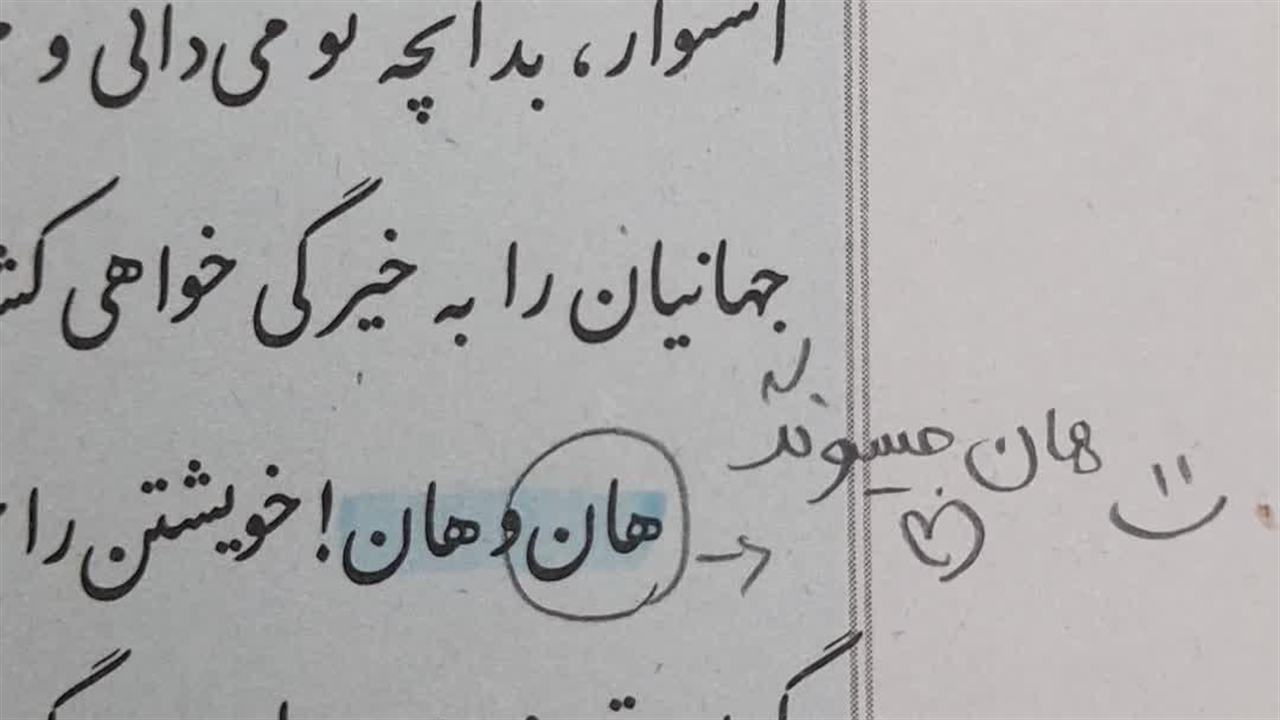 استوار، بدانچه تو می‌دانی و
جهانیان را به خیرگی خواهی
هان و هان! خویشتن را
هان